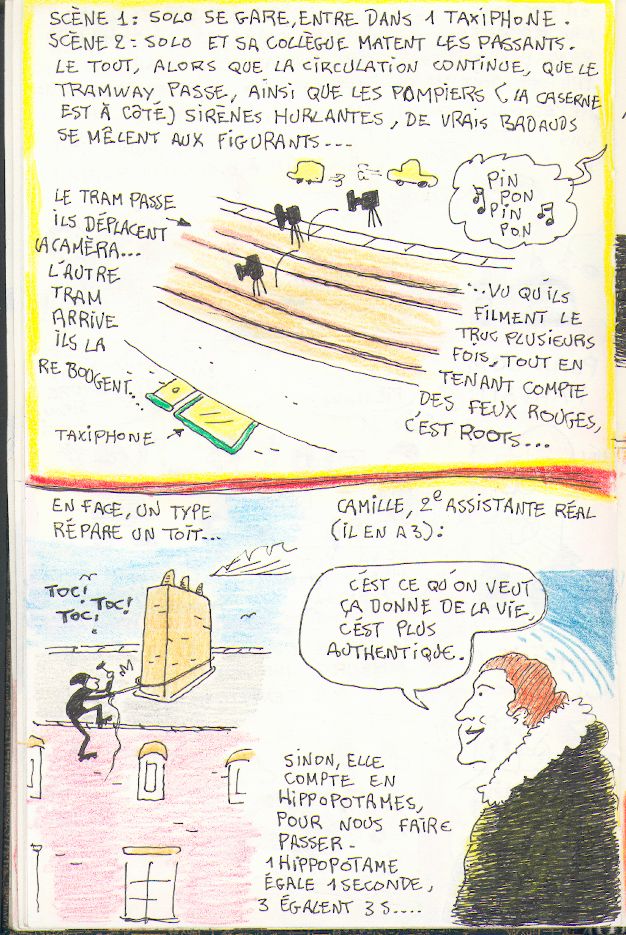 SCÈNE 1: SOLO SE GARE, ENTRE DANS 1 TAXIPHONE.
SCÈNE 2: SOLO ET SA COLLÈGUE MATENT LES PASSANTS.
LE TOUT, ALORS QUE LA CIRCULATION CONTINUE, QUE LE
TRAMWAY PASSE, AINSI QUE LES POMPIERS (LA CASERNE
EST À CÔTÉ) SIRÈNES HURLANTES, DE VRAIS BADAUDS
SE MÊLENT AUX FIGURANTS...
PIN
PON
PIN
PON
LE TRAM PASSE
ILS DÉPLACENT
LA CAMÈRA...
L'AUTRE
TRAM
ARRIVE
ILS LA
RE BOUGENT...
TAXIPHONE
...VU QU'ILS
FILMENT LE
TRUC PLUSIEURS
FOIS, TOUT EN
TENANT COMPTE
DES FEUX ROUGES,
C'EST ROOTS...
EN FACE, UN TYPE
RÉPARE UN TOÎT...
TOC!
TOC!
TOC!
CAMILLE, 2e ASSISTANTE RÉAL
(IL EN A 3):
C'EST CE QU'ON VEUT
ÇA DONNE DE LA VIE,
C'EST PLUS
AUTHENTIQUE.
SINON, ELLE
COMPTE EN
HIPPOPOTAMES,
POUR NOUS FAIRE
PASSER.
1 HIPPOPOTAME
ÉGALE 1 SECONDE,
3 ÉGALENT 3 S....